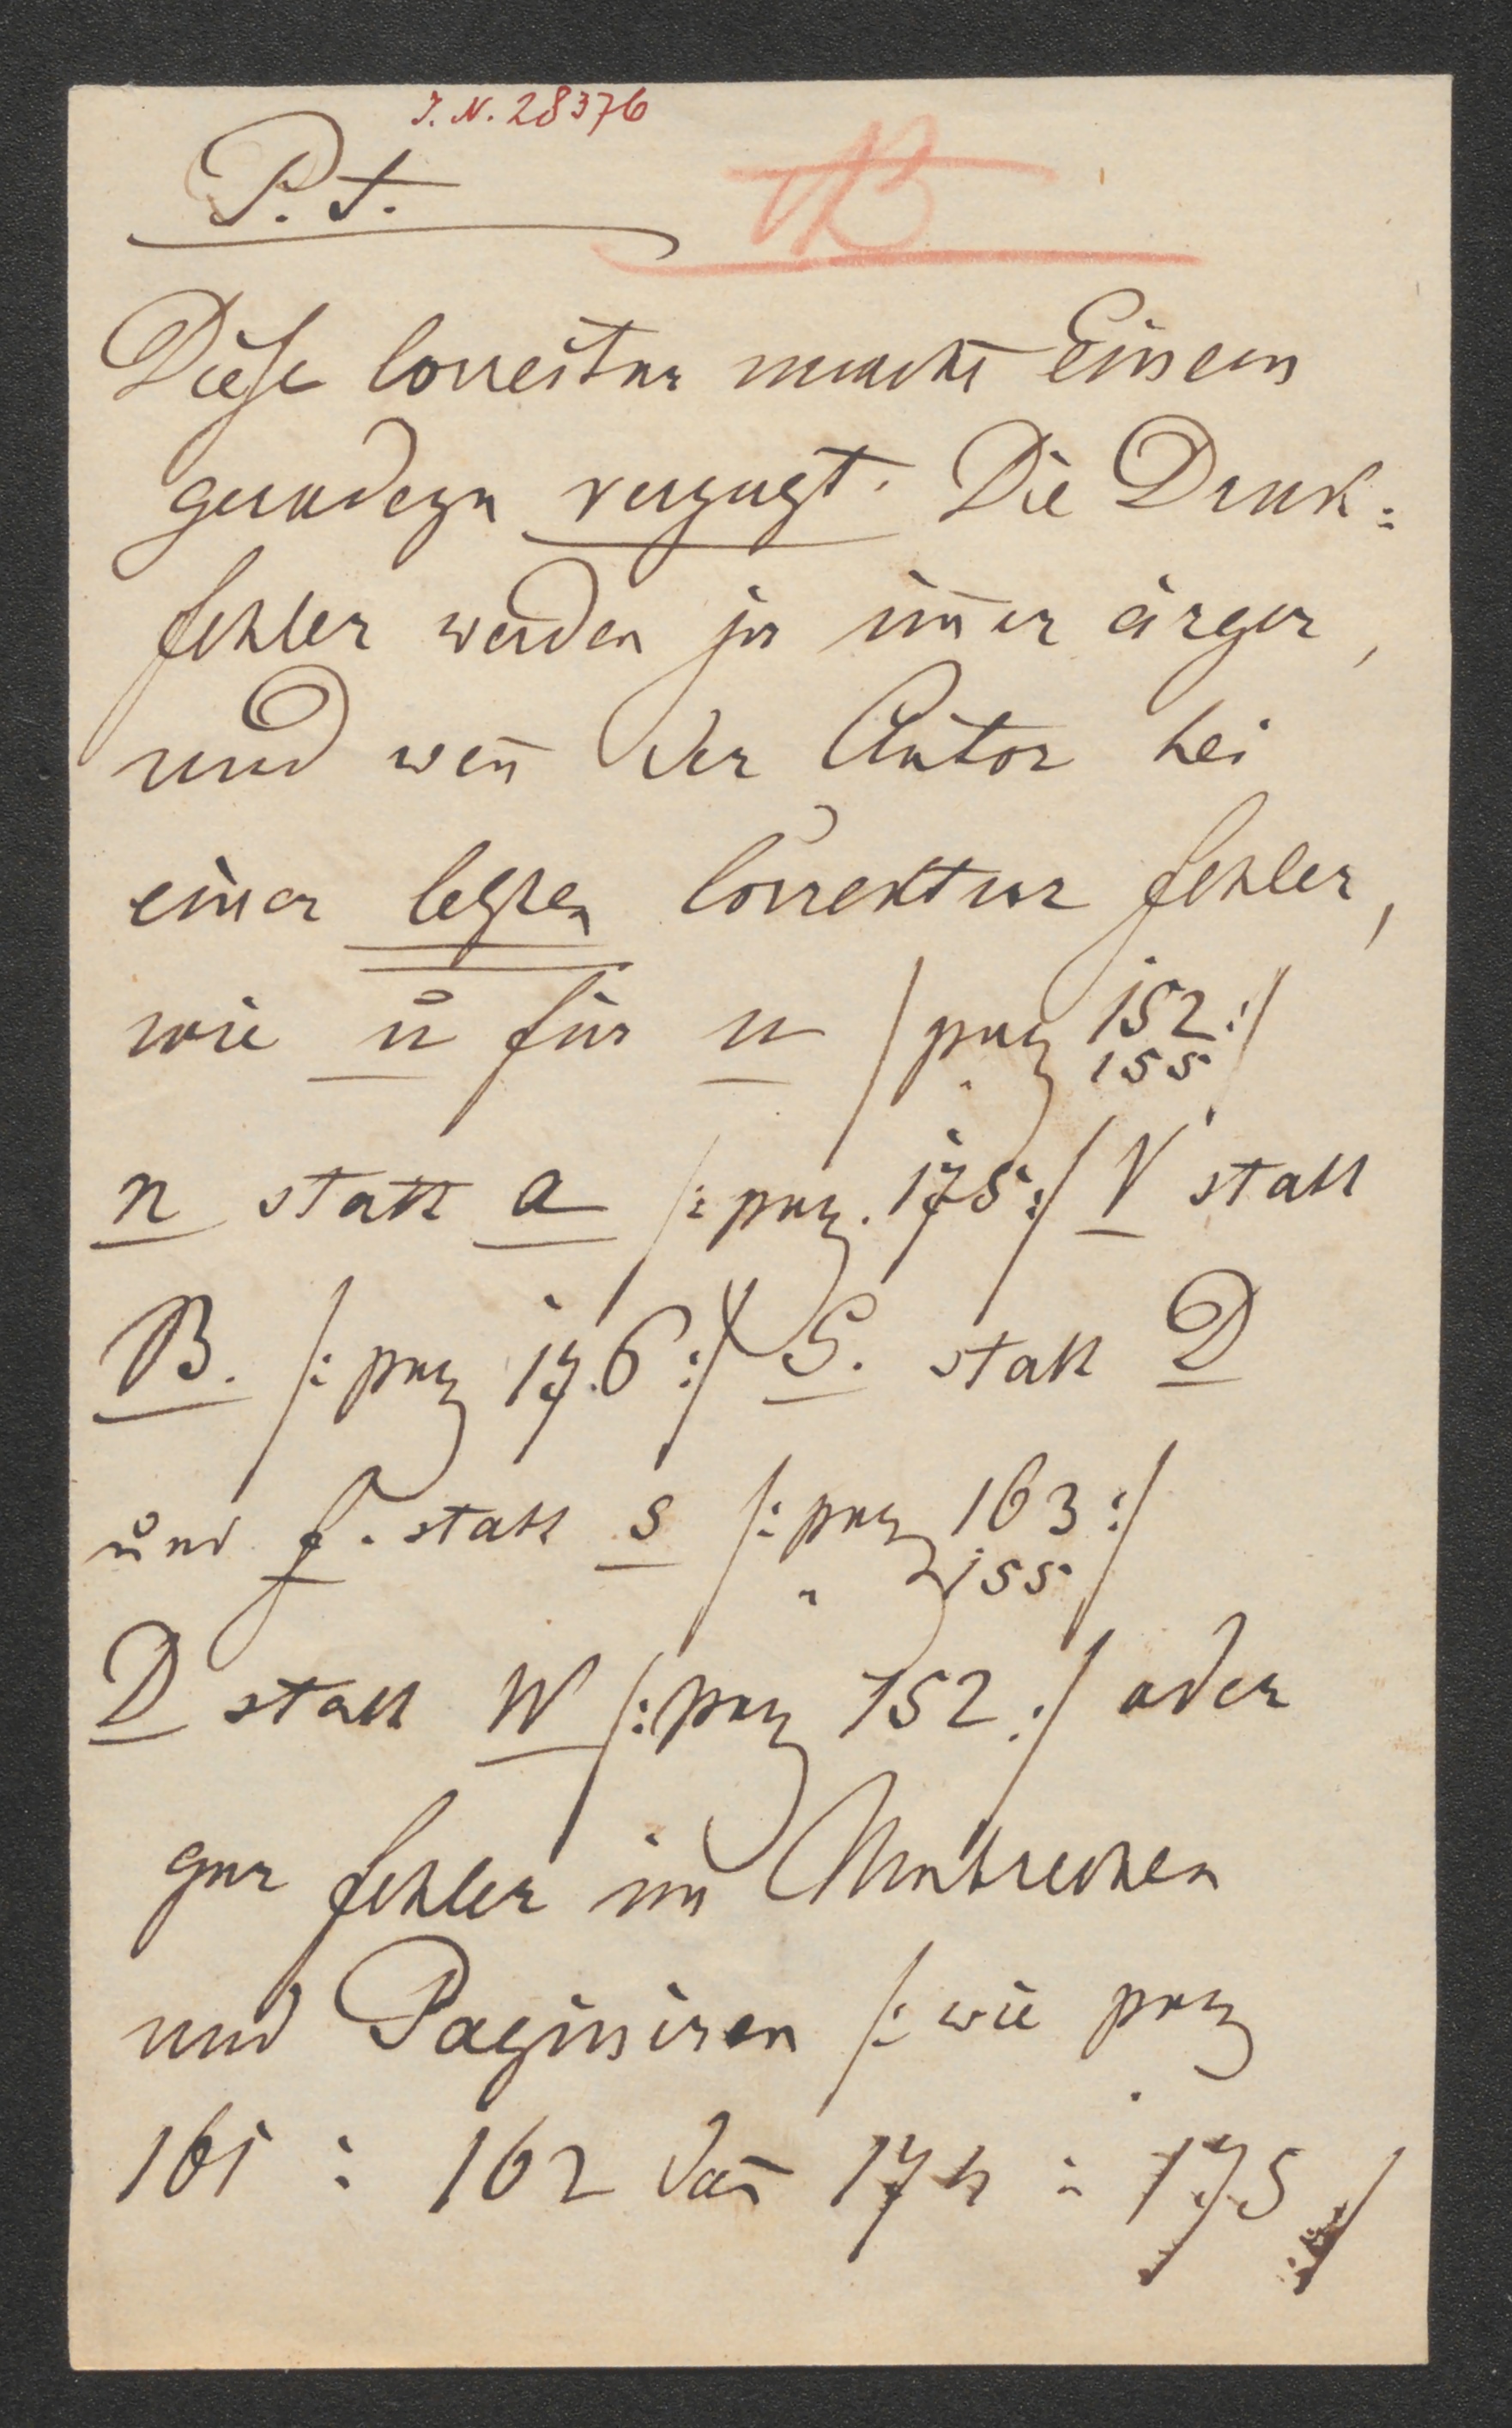 I. N. 28376
P. T.
NB
Diese Correctur macht Einem
geradezu verzagt. Die Druk=
fehler werden ja im̄er ärger,
und wen̄ der Autor bei
einer letzten Correktur fehler,
wie ů für n /pag 152:/
" 155
n statt a /:pag. 175:/ V statt
B. /:pag 176:/ S. statt D
und f. statt s /:pag 163:/
" 155
D statt W /:pag 152:/ oder
gar fehler im Umbrechen
und Paginiren /: wie pag
161 : 162 dan̄ 174 : 175 :/